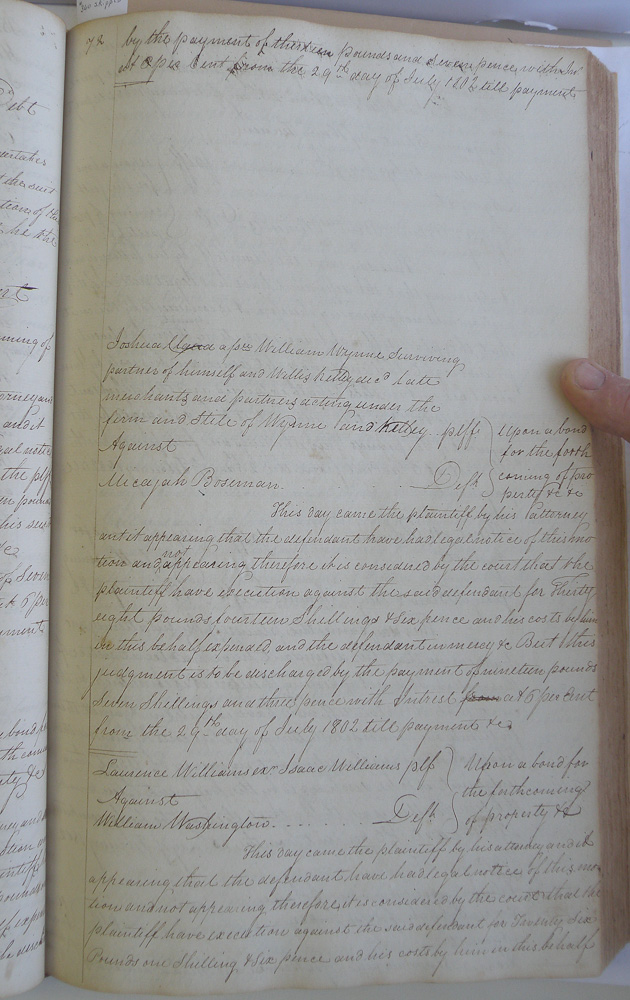 72
by the payment of thirteen pounds and seven pence with Int
at 5 per Cent from the 29th day of July 1802 till payment
&c
Joshua assee William Wynne Surviving
partner of himself and Willis Kelley decd late
merchants and partners acting under the
firm and Stile of Wynne and Kelley plff
Against
Micajah Boseman. Deft
Upon a bond
for the forth
coming of pro
perty &c &c
This day came the plaintiff by his attorney
and it appearing that the defendant have had legal notice of this mo
tion and not appearing therefore it is considered by the court that the
plaintiff have execution against the said defendant for Thirty
eight pounds fourteen Shillings & Six pence and his costs by him
in this behalf expended, and the defendant in mercy &c But this
judgment is to be discharged by the payment of nineteen pounds
Seven Shillings and three pence with Intrest from at 5 per Cent
from the 29th day of July 1802 till payment &c
Laurence Williams exr Isaac Williams plff
Against
William Washington. Deft
Upon a bond for
the forthcoming
of property &c
This day came the plaintiff by his attorney and it
appearing that the defendant have had legal notice of this mo
tion and not appearing therefore it is considered by the court that the
plaintiff have execution against the said defendant for Twenty Six
Pounds one Shilling & Six pence and his costs by him in this behalf